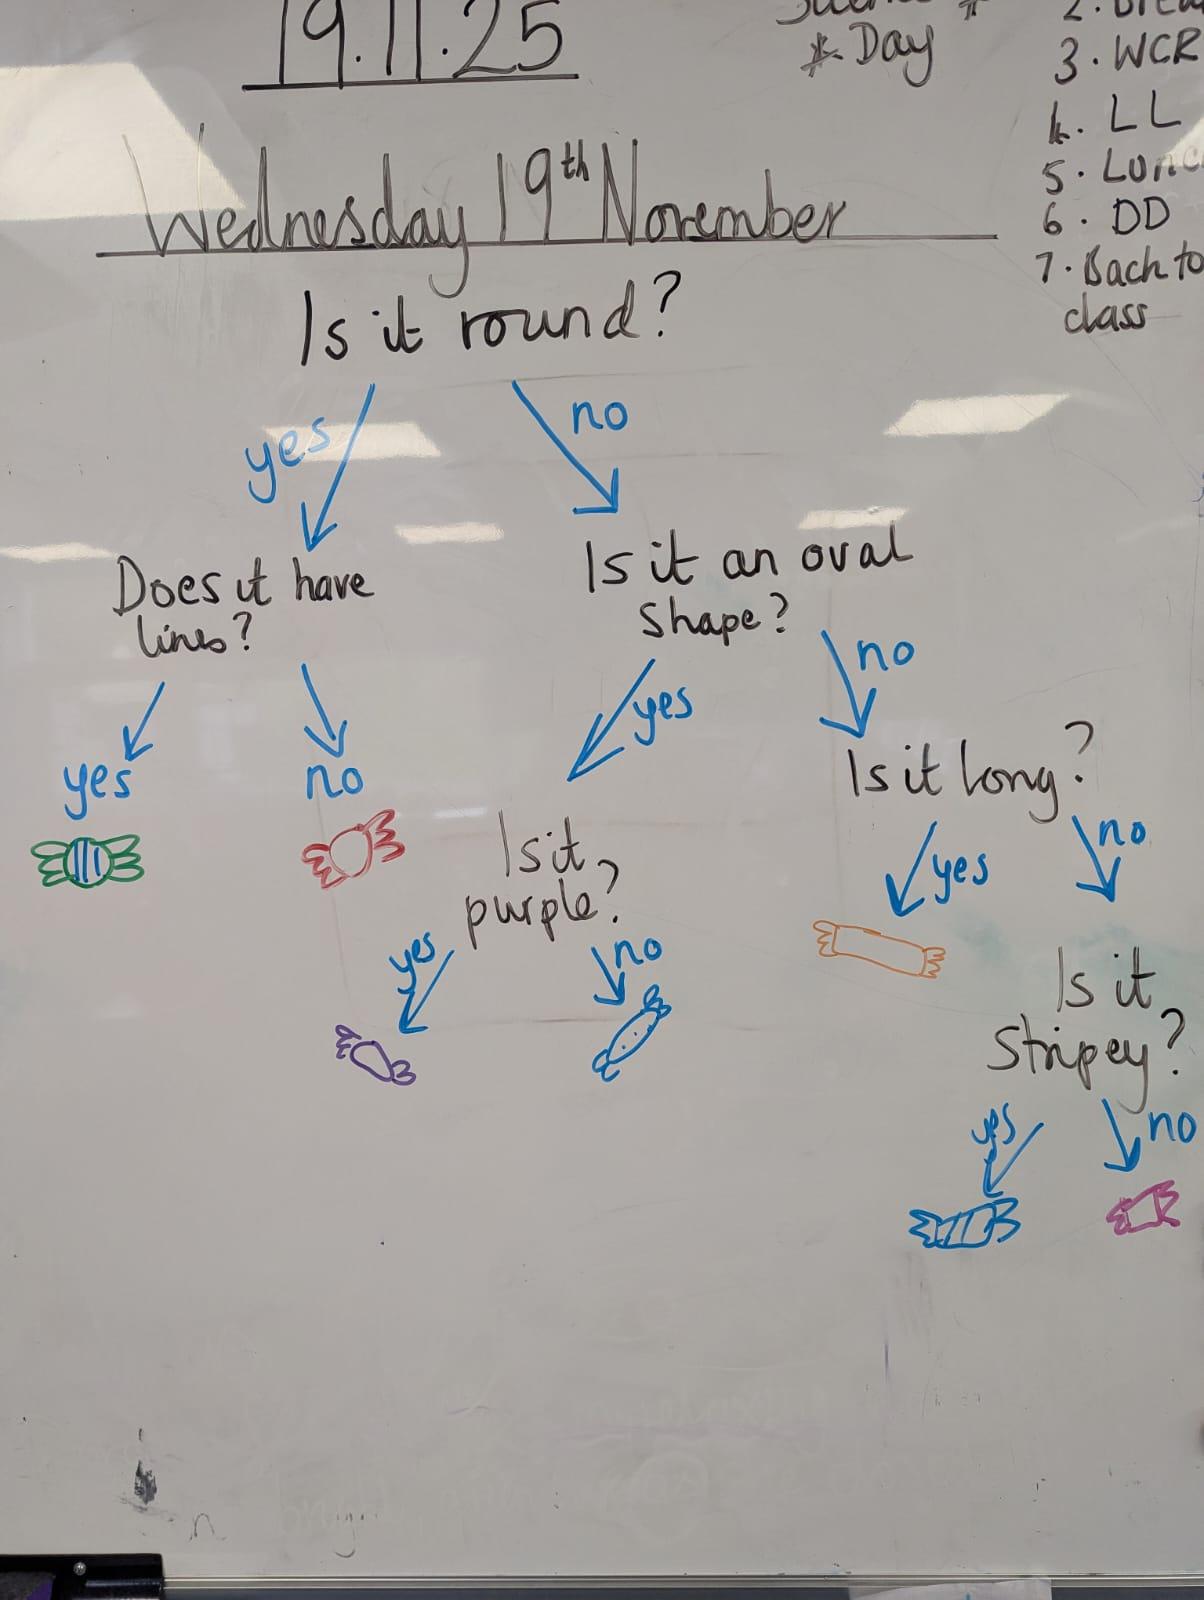 19.11.25
* Day
3. WCR
4. LL
5. Lunc
6. DD
7. Back to
class
Wednesday 19th November
Is it round?
yes
no
Does it have
lines?
Is it an oval
shape?
yes
no
yes
no
Is it long?
yes
no
Is it
purple?
yes
no
Is it
Stripey?
yes
no